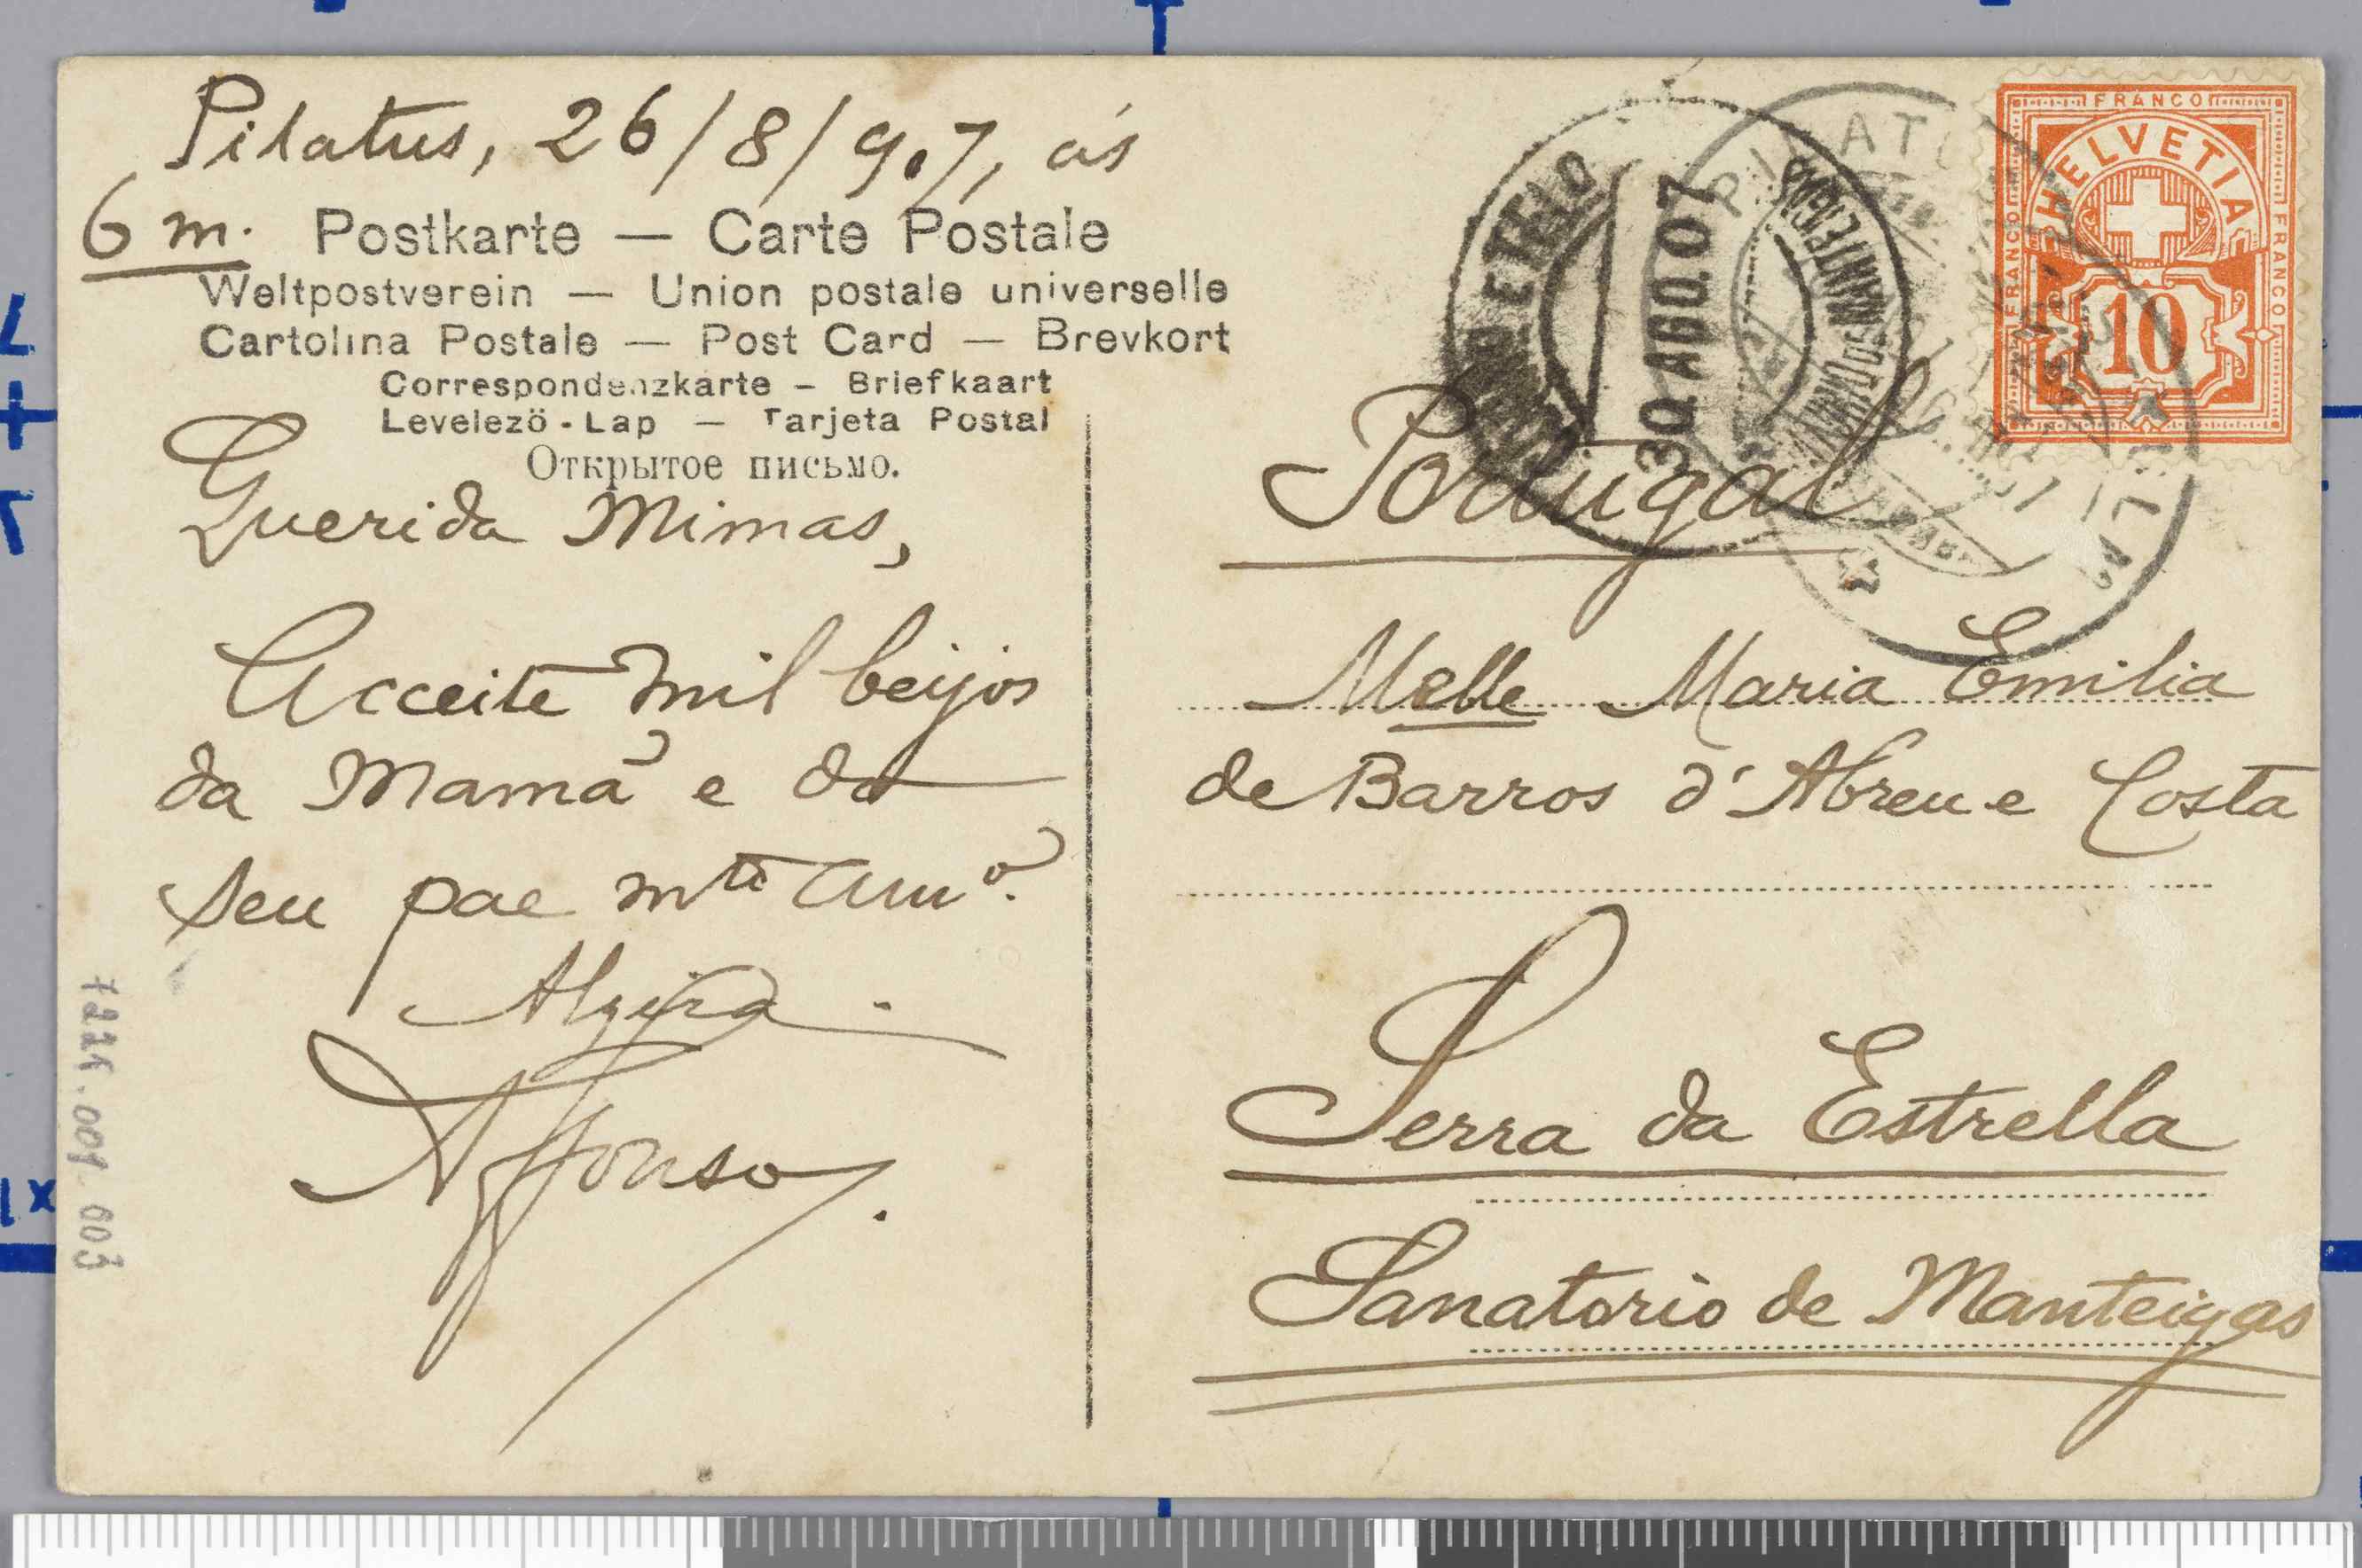 Pilatus, 26/8/907, ás
6 m.
Postkarte — Carte Postale
Weltpostverein — Union postale universelle
Cartolina Postale — Post Card — Brevkort
Correspondenzkarte – Briefkaart
Levelezö-Lap — Tarjeta Postal
Открытое письмо.
Querida Mimas,
Acceite mil beijos
da Mamã e do
seu pae mto amo.
Alzira.
Affonso.
FRANCO
HELVETIA
FRANCO
FRANCO
10
30 AGO. 07
Portugal
Melle Maria Emilia
de Barros d'Abreu e Costa
Serra da Estrella
Sanatorio de Manteigas
7226.009.003